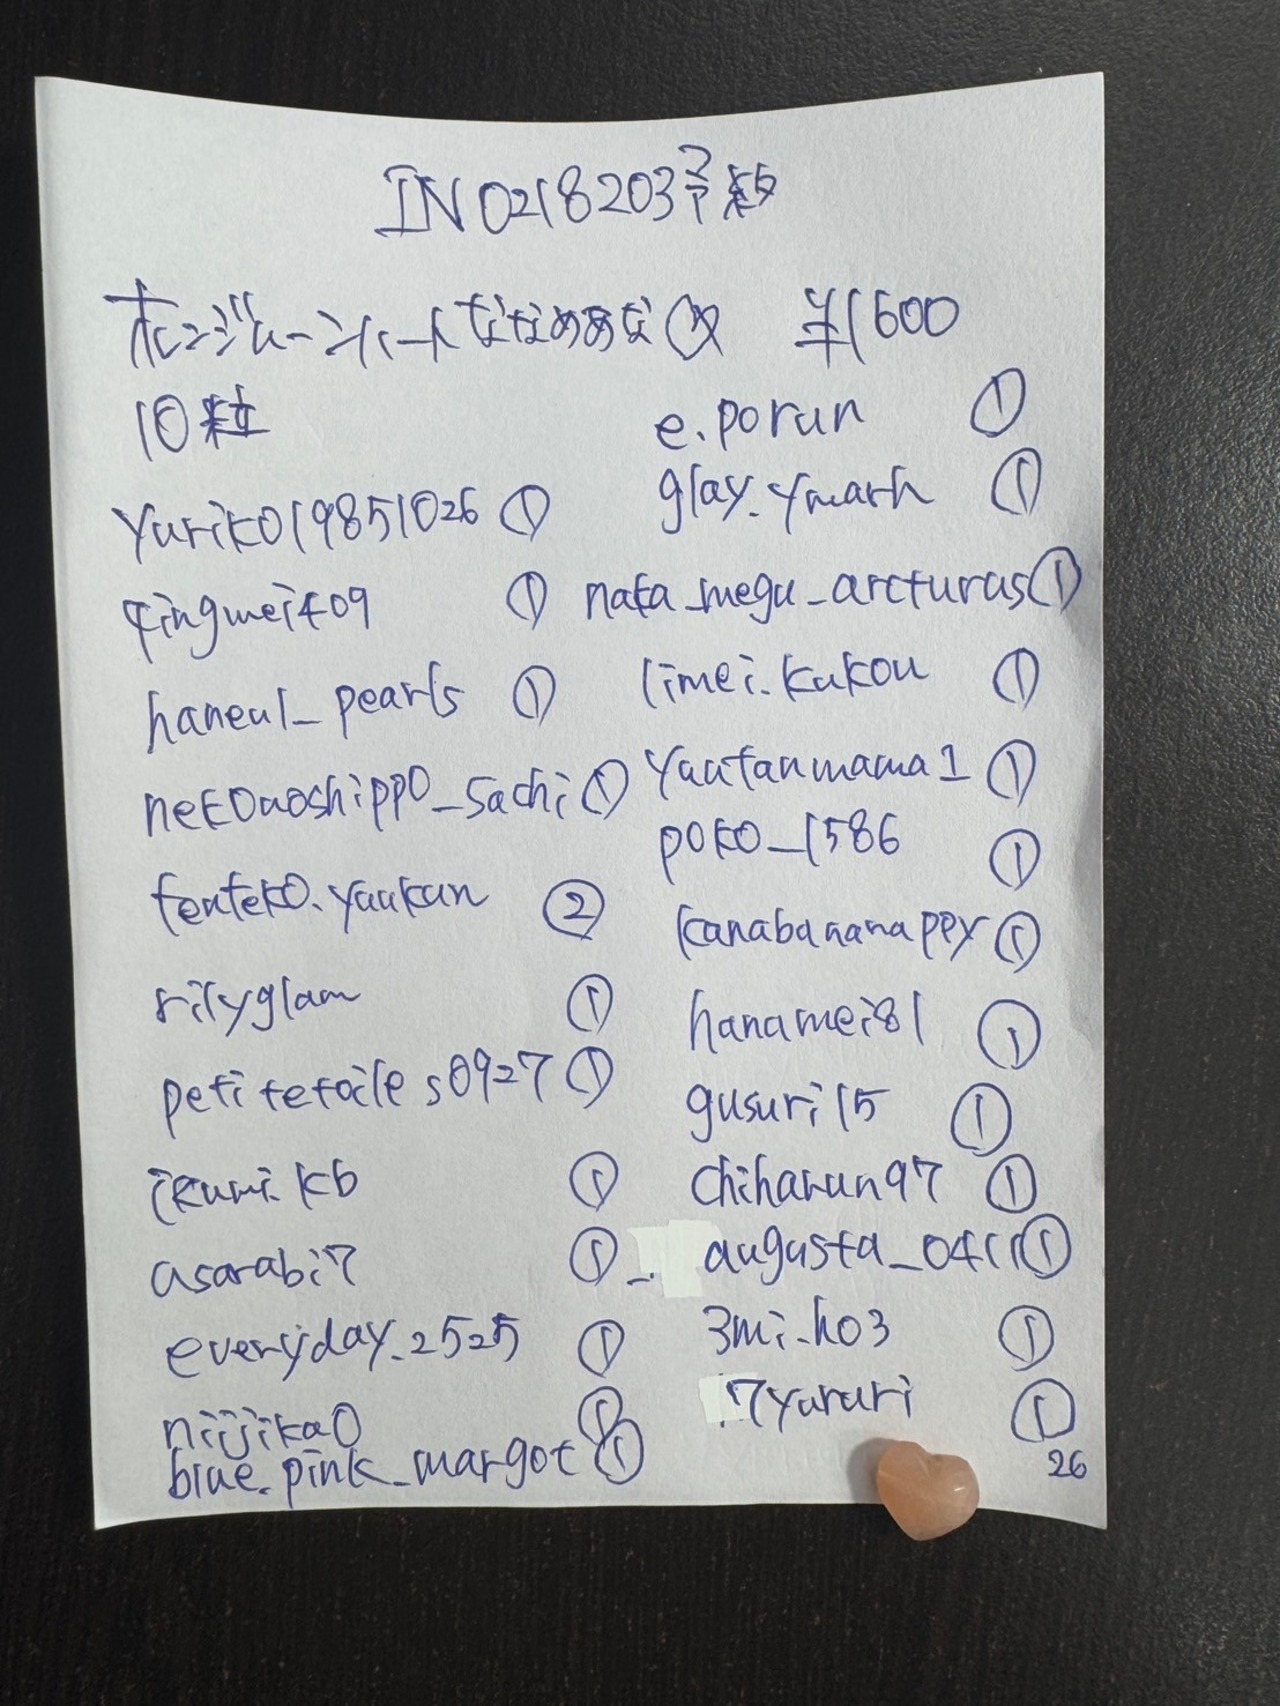 IN0218203予約
ホンジュレーンハートななめあな ¥1600
10粒
yuriko19851026 ①
qingmei409 ①
haneul_pearls ①
nekonoshippo_sachi ①
tenteko.yuukun ②
rilyglam ①
petitetoiles0927 ①
ikumi.kb ①
asarabi7 ①
everyday.2525 ①
niijika0 ①
blue.pink_margot ①
e.porun ①
glay.ymarh ①
nata_megu_arcturus ①
limei.kukou ①
yuutanmama1 ①
poko_1586 ①
kanabananappy ①
hanamei81 ①
gusuri15 ①
chiharun97 ①
augusta_0411 ①
3mi_ho3 ①
17yururi ①
26